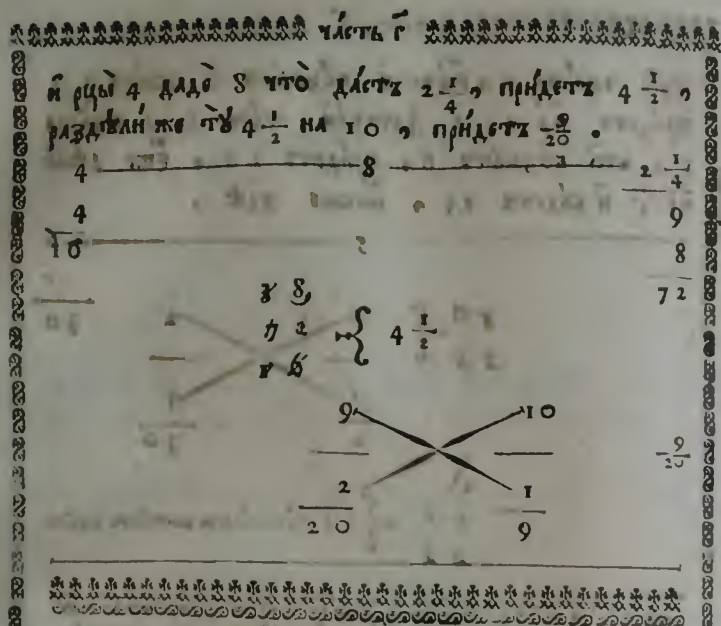 ча́сть г҃
и҆ рцы̀ 4 дадѐ 8 что̀ да́стъ 2 1/4, при́детъ 4 1/2,
раздѣли́ же тꙋ̀ 4 1/2 на 10, при́детъ 9/20.
4 8 2 1/4
4 9
16 8
72
8
7 2 { 4 1/2
1 6
9 10
9/20
2 1
20 9